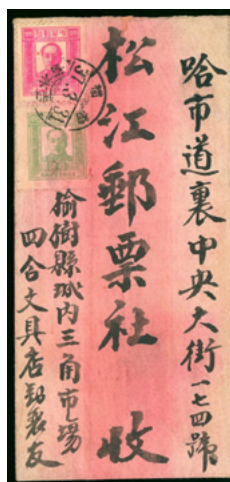 哈市道裏中央大街一七四號
松江郵票社 收
榆樹縣城内三角市場
四合文具店